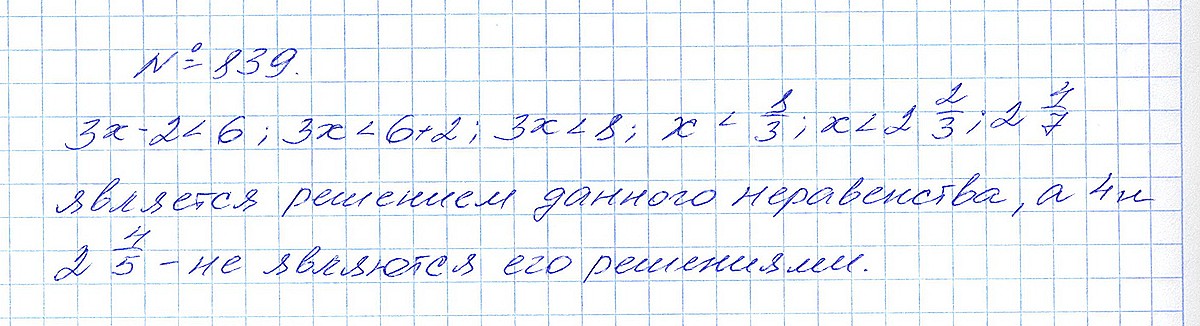 № 839.
3x-2<6; 3x<6+2; 3x<8; x < 8/3; x<2 2/3; 2 4/7
является решением данного неравенства, а 4 и
2 4/5 - не являются его решениями.